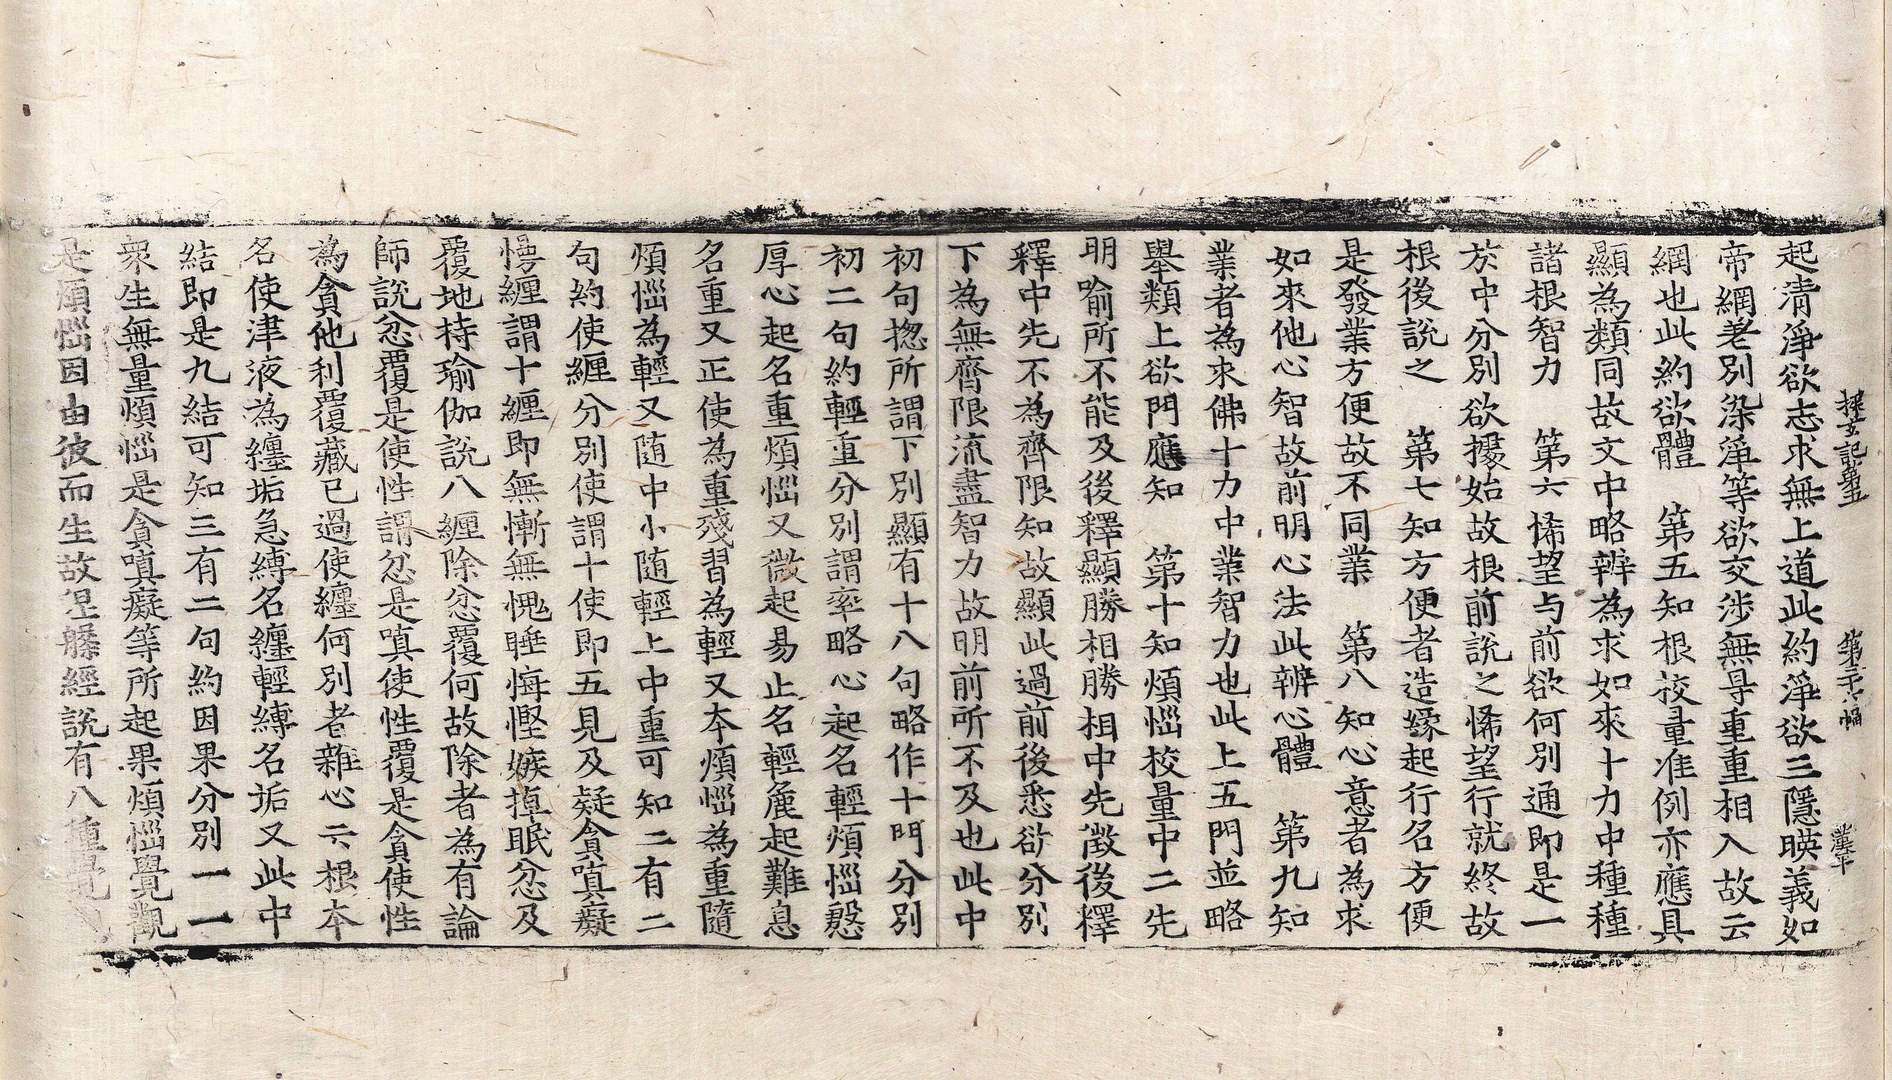 起清淨欲志求無上道此約淨欲三隱暎義如
帝網差別染淨等欲交涉無㝵重重相入故云
網也此約欲體　第五知根挍量准例亦應具
顯為類同故文中略辨為求如來十力中種種
諸根智力　第六悕望与前欲何別通即是一
於中分別欲據始故根前說之悕望行就終故
根後說之　第七知方便者造緣起行名方便
是發業方便故不同業　第八知心意者為求
如來他心智故前明心法此辨心體　第九知
業者為求佛十力中業智力也此上五門並略
舉類上欲門應知　第十知煩惱校量中二先
明喻所不能及後釋顯勝相勝相中先徵後釋
釋中先不為齊限知故顯此過前後悉欲分別
下為無齊限流盡智力故明前所不及也此中
初句揔所謂下別顯有十八句略作十門分別
初二句約輕重分別謂率略心起名輕煩惱慇
厚心起名重煩惱又微起易止名輕麁起難息
名重又正使為重殘習為輕又夲煩惱為重隨
煩惱為輕又隨中小隨輕上中重可知二有二
句約使纏分別使謂十使即五見及疑貪嗔癡
慢纏謂十纏即無慚無愧睡悔慳嫉掉眠忿及
覆地持瑜伽說八纏除忿覆何故除者為有論
師說忿覆是使性謂忿是嗔使性覆是貪使性
為貪他利覆藏已過使纏何別者雜心云根本
名使津液為纏垢急縛名纏輕縛名垢又此中
結即是九結可知三有二句約因果分別一一
眾生無量煩惱是貪嗔癡等所起果煩惱覺觀
是煩惱因由彼而生故涅槃經說有八種覺